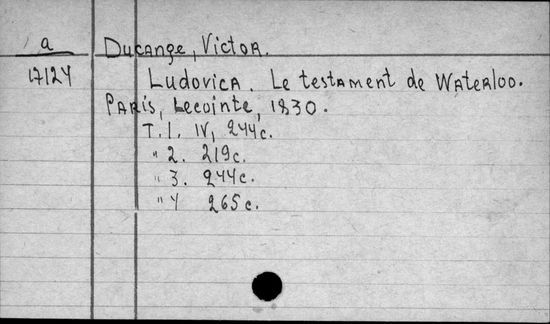 a
17124
Ducange, Victor.
Ludovica. Le testament de Waterloo.
Paris, Lecointe, 1830.
T.1. IV, 244c.
" 2. 219c.
" 3. 244c.
" 4 265c.